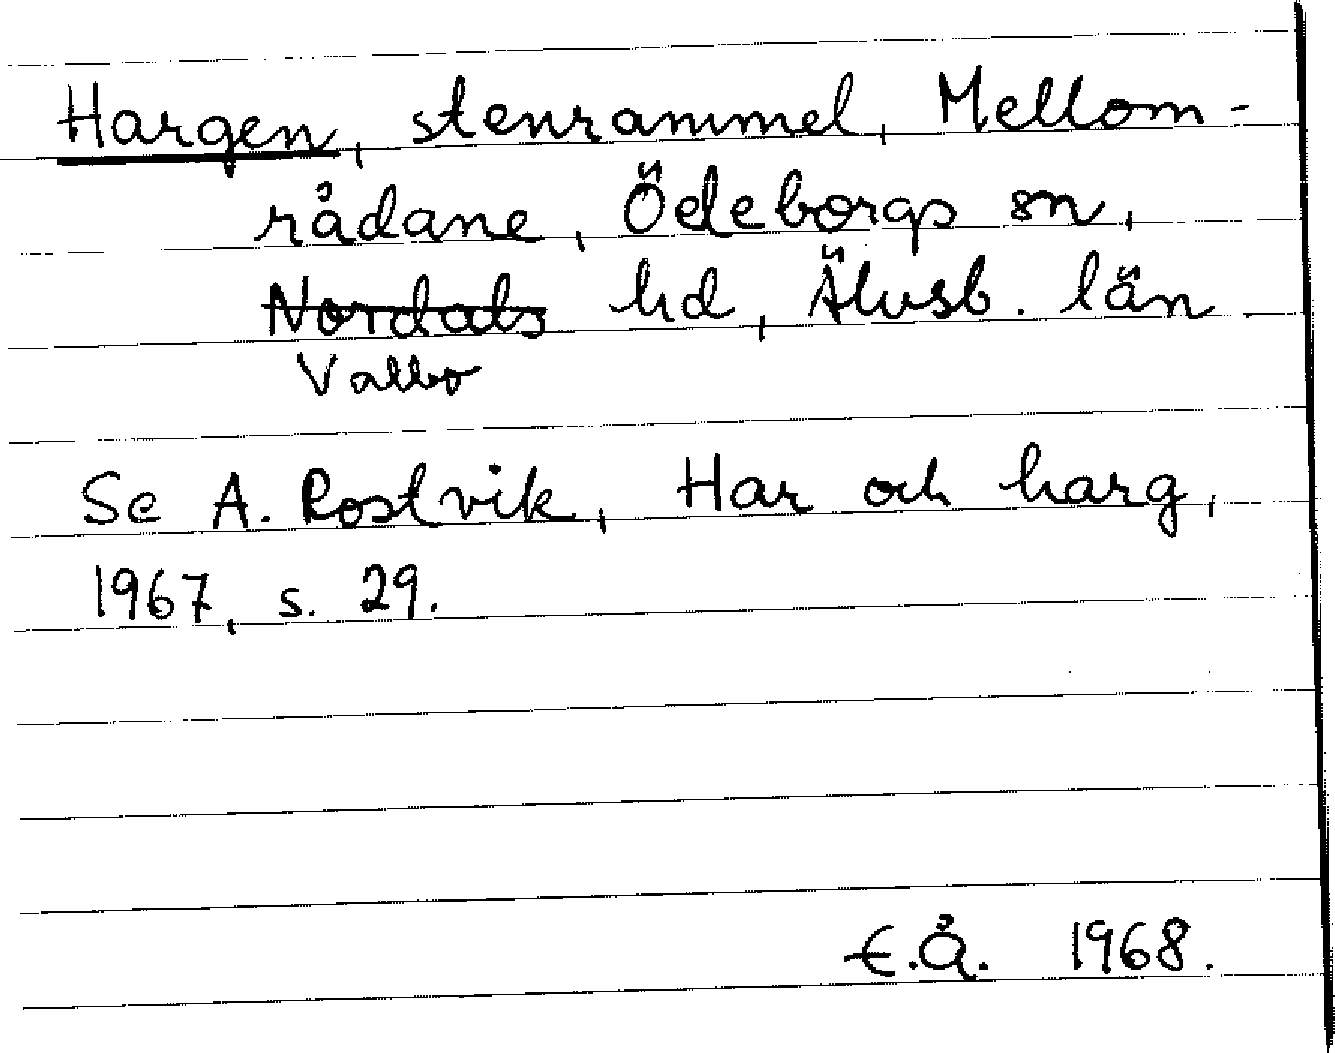 Hargen, stenrammel, Mellom-
rådane, Ödeborgs sn,
Nordals hd, Älvsb. län
Valbo
Se A. Rostvik, Har och harg,
1967, s. 29.
E.Å. 1968.